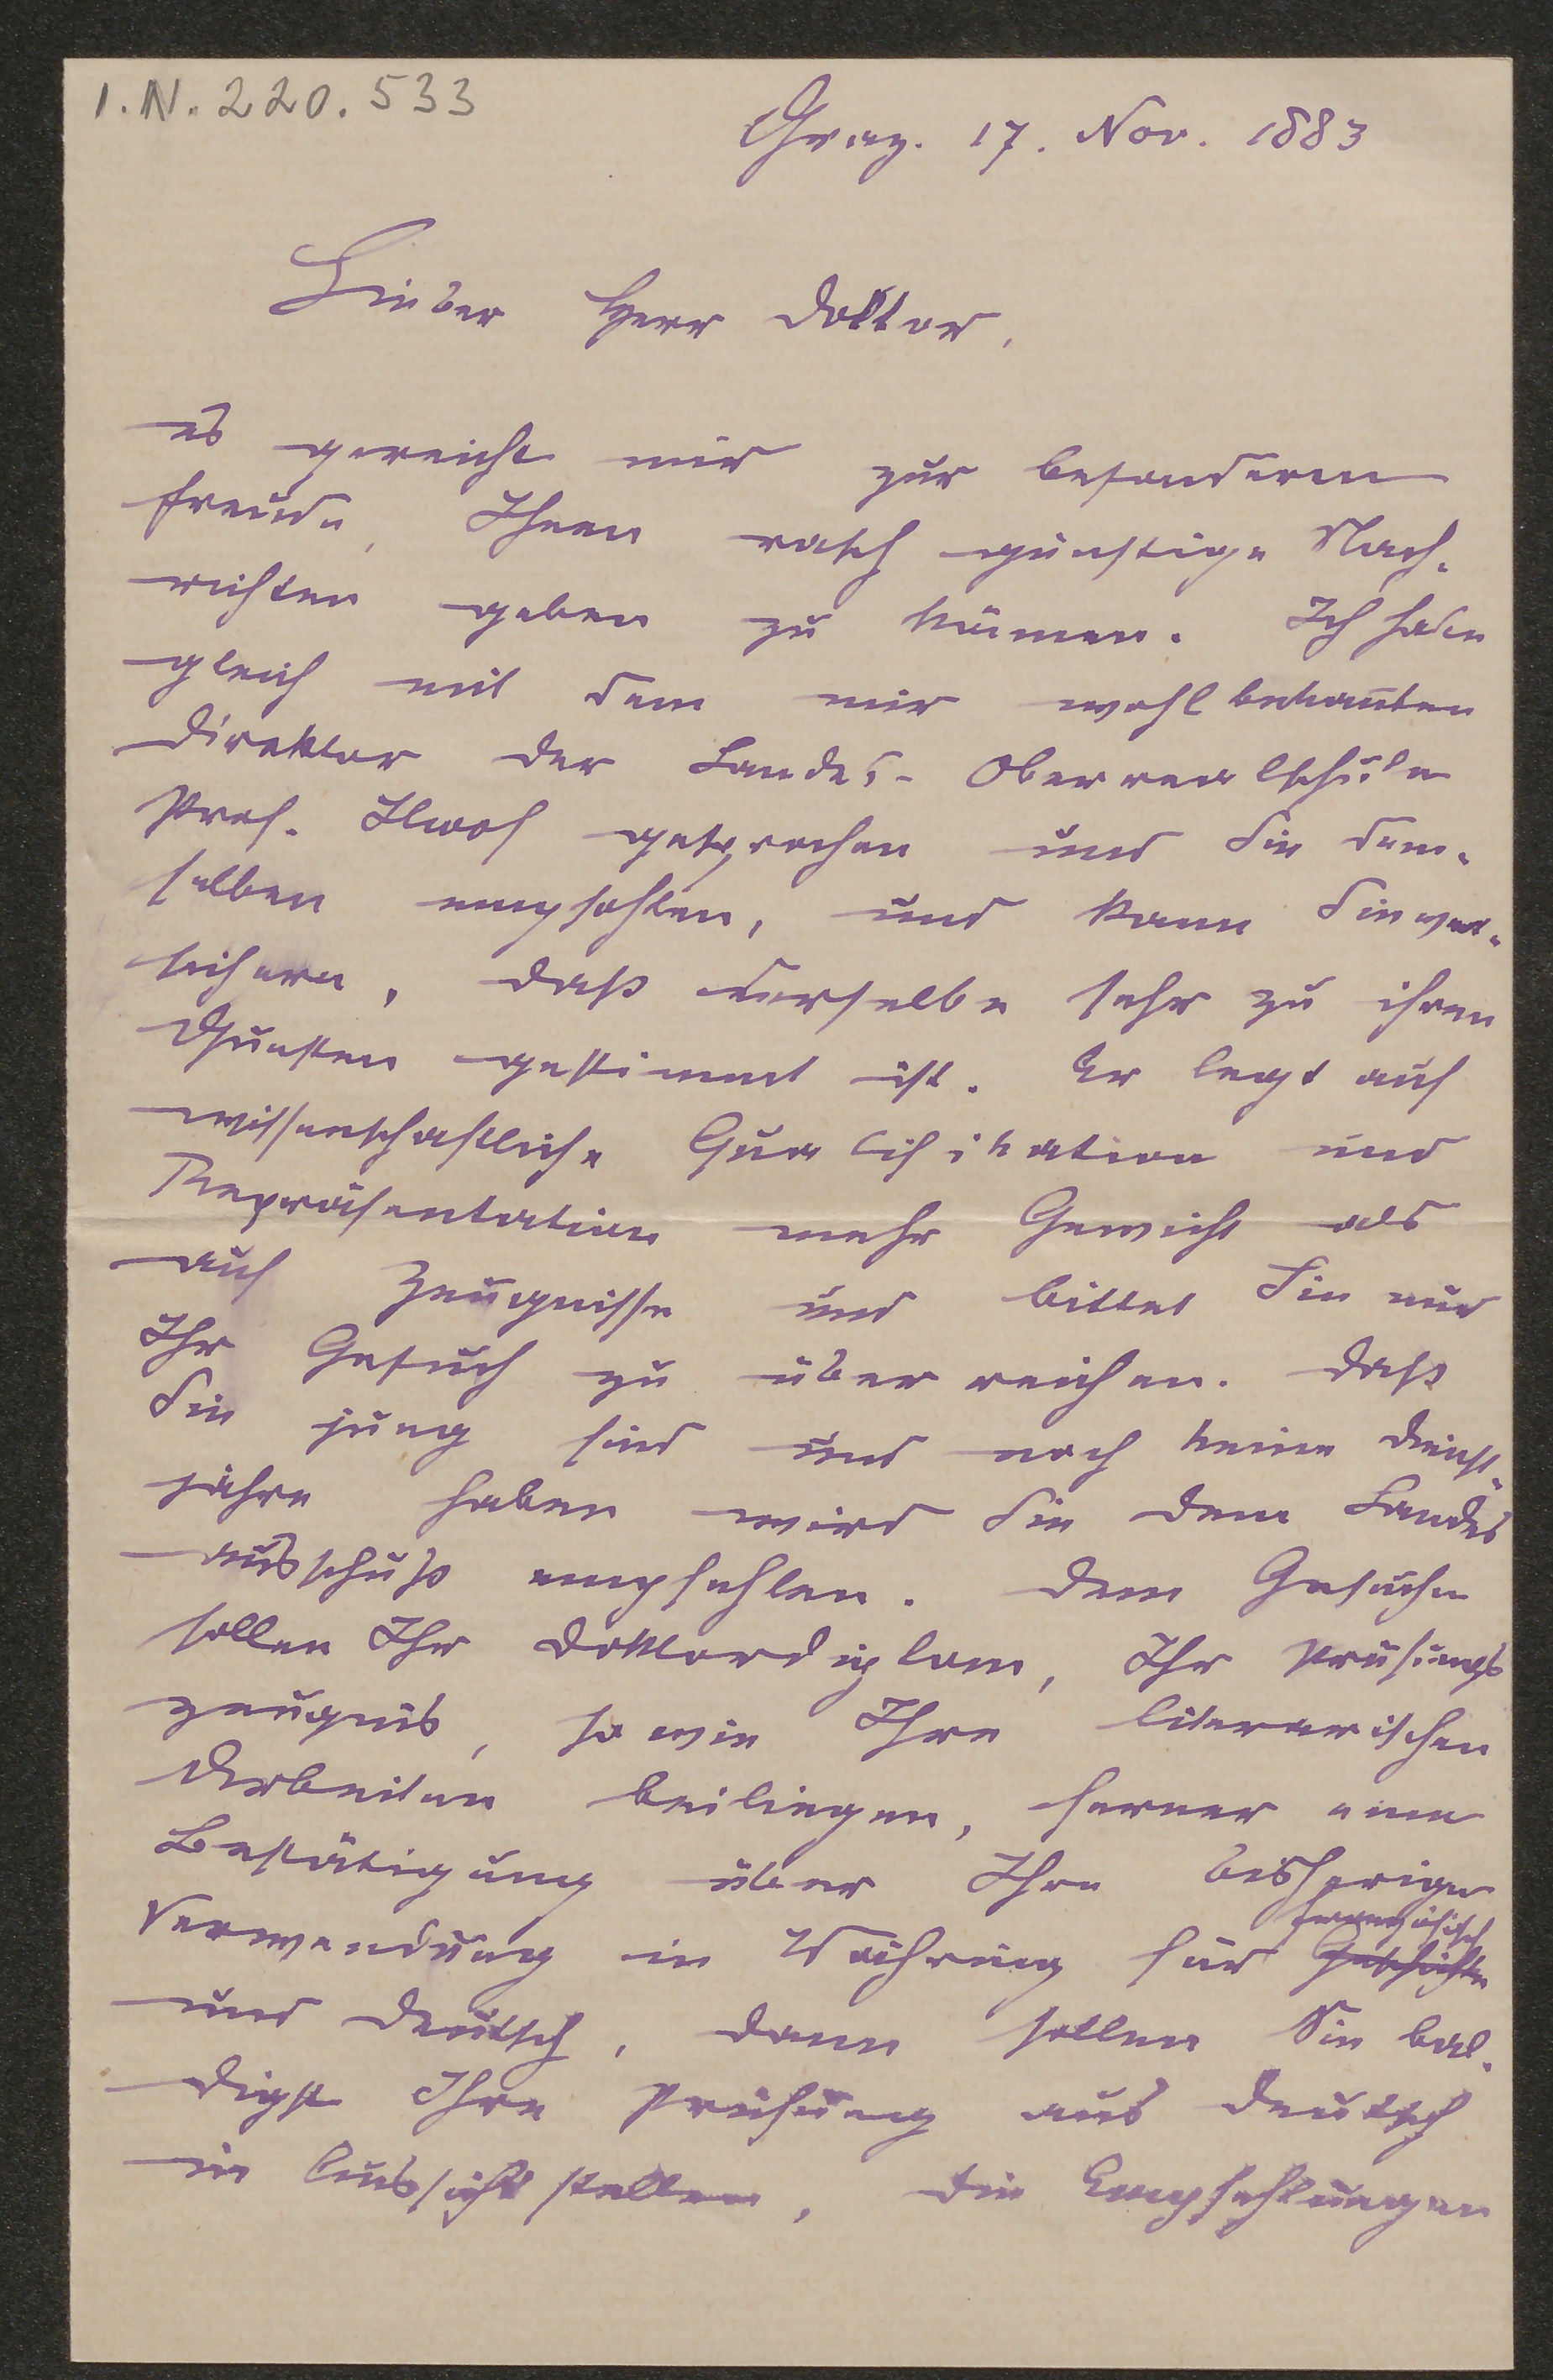 I.N. 220.533
Graz. 17. Nov. 1883
Lieber Herr Doktor,
es gereicht mir zur besonderen
Freude, Ihnen rasch günstige Nach-
richten geben zu können. Ich habe
gleich mit dem mir wohl bekannten
Direktor der Landes-Oberrealschule
Prof. Ilwof gesprochen und Sie dem-
selben empfohlen, und kann Sie ver-
sichern, daß derselbe sehr zu ihren
Gunsten gestimmt ist. Er legt auf
wissenschaftliche Qualifikation und
Repräsentation mehr Gewicht als
auf Zeugnisse und bittet Sie nur
Ihr Gesuch zu überreichen. Daß
Sie jung sind und noch keine Dienst-
jahre haben wird Sie dem Landes
ausschuß empfehlen. Dem Gesuche
sollen Ihr Doktordiplom, Ihr Prüfungs
zeugnis, sowie Ihre literarischen
Arbeiten beiliegen, ferner eine
Bestätigung über Ihre bisherige
französisch
Verwendung in Währing für Geschichte
und Deutsch, dann sollen Sie bal-
digst Ihre Prüfung aus Deutsch
in Aussicht stellen, die Empfehlungen